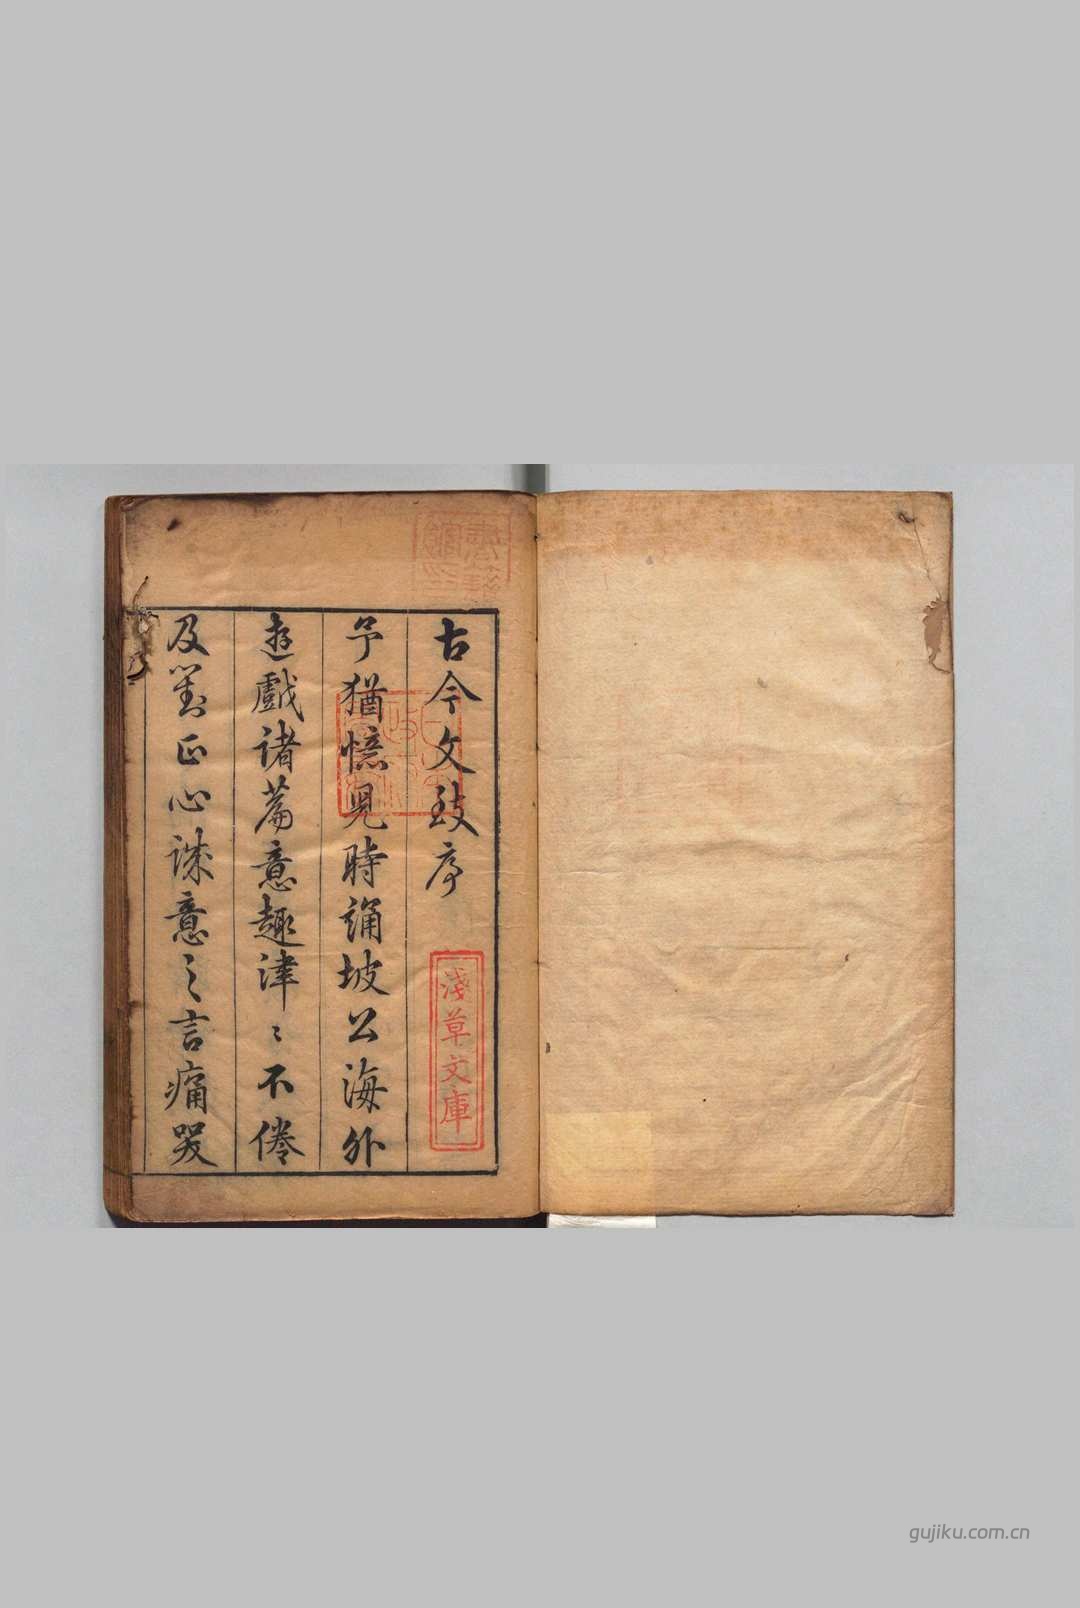 古今文致序
予猶憶兒時誦坡公海外
遊戲諸篇意趣津〻不倦
及對正心誠意之言痛哭
淺草文庫
gujiku.com.cn